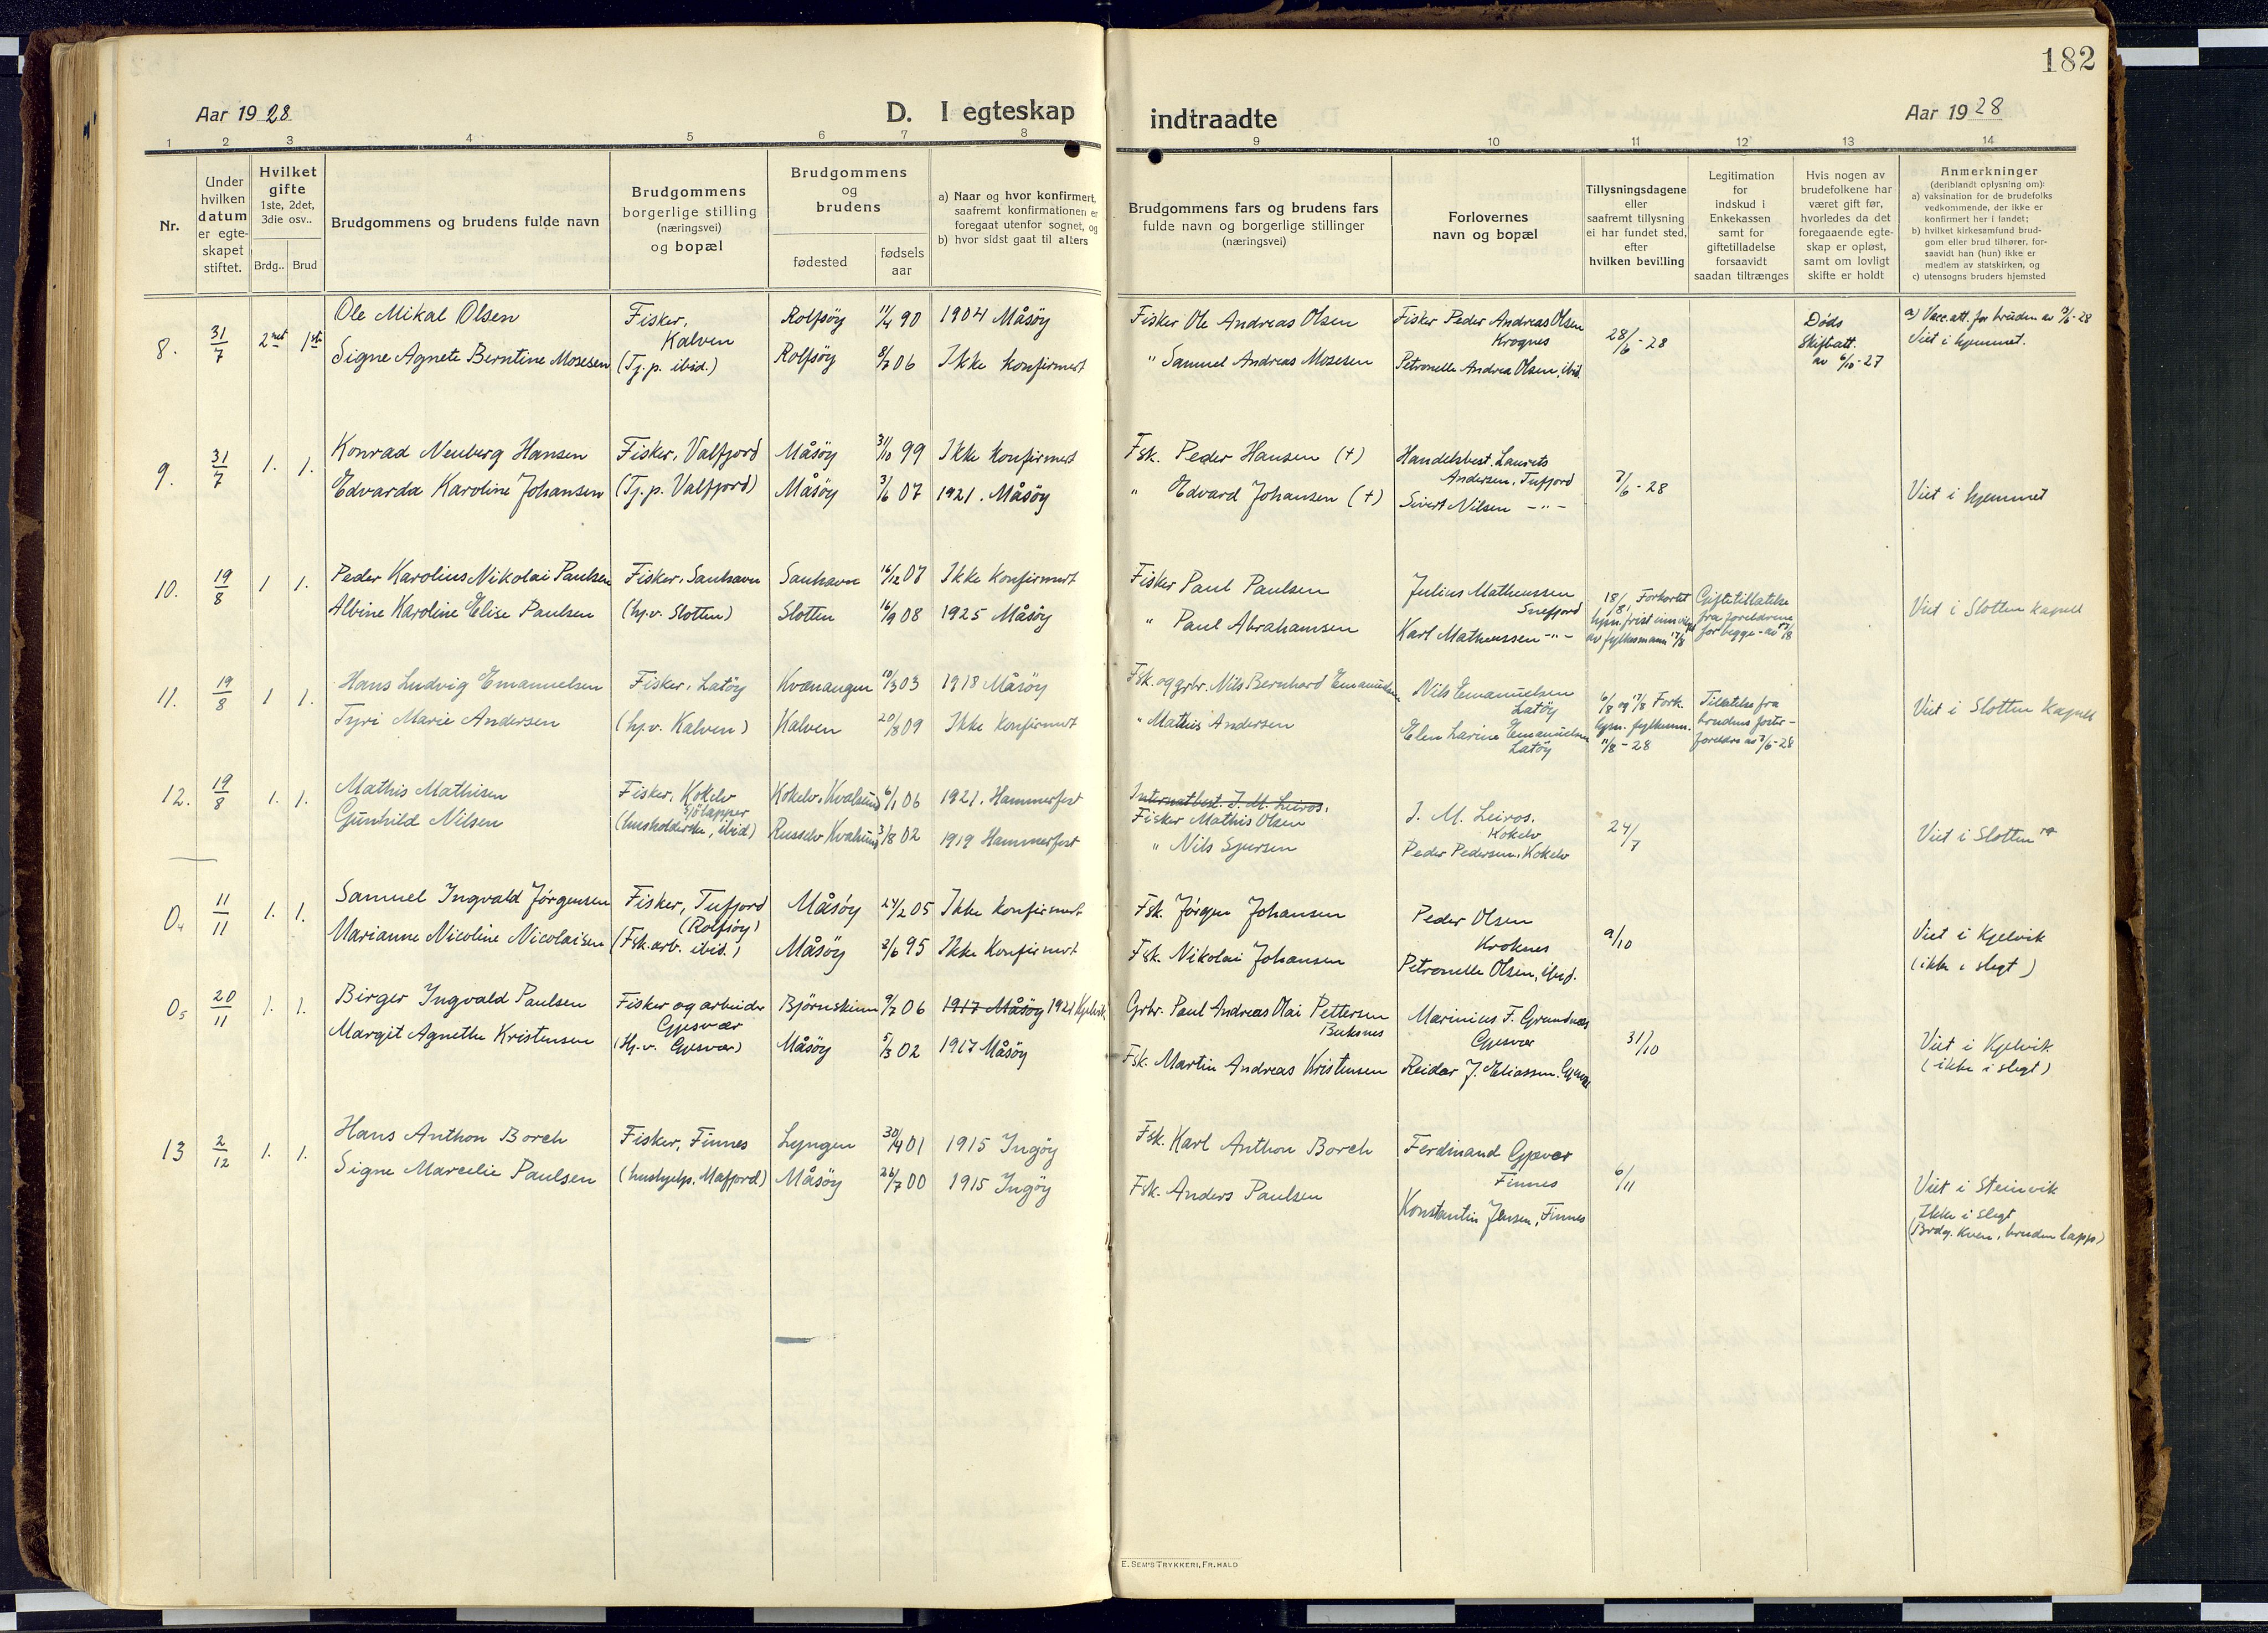 182
Aar 1928
D. I egteskap
indtraadte
Aar 1928
1 2 3 4 5 6 7 8 9 10 11 12 13 14
Nr.
Under hvilken datum er egteskapet stiftet.
Hvilket gifte 1ste, 2det, 3die osv..
Brdg.. Brud
Brudgommens og brudens fulde navn
Brudgommens borgerlige stilling (næringsvei) og bopæl
Brudgommens og brudens
fødested
fødsels aar
a) Naar og hvor konfirmert, saafremt konfirmationen er foregaat utenfor sognet, og
b) hvor sidst gaat til alters
Brudgommens fars og brudens fars fulde navn og borgerlige stillinger (næringsvei)
Forlovernes navn og bopæl
Tillysningsdagene eller saafremt tillysning ei har fundet sted, efter hvilken bevilling
Legitimation for indskud i Enkekassen samt for giftetilladelse forsaavidt saadan tiltrænges
Hvis nogen av brudefolkene har været gift før, hvorledes da det foregaaende egteskap er opløst, samt om lovligt skifte er holdt
Anmerkninger
(deriblandt oplysning om):
a) vaksination for de brudefolks vedkommende, der ikke er konfirmert her i landet;
b) hvilket kirkesamfund brudgom eller brud tilhører, forsaavidt han (hun) ikke er medlem av statskirken, og
c) utensogns bruders hjemsted
8. 31/7 2net 1ste
Ole Mikal Olsen
Signe Agnete Berntine Mosesen
Fisker, Kalven
(Tj. p. ibid.)
Rolfsöy 11/4 90 1904 Måsöy
Rolfsöy 8/7 06 Ikke konfirmert
Fisker Ole Andreas Olsen
" Samuel Andreas Mosesen
Fisker Peder Andreas Olsen
Krognes
Petronelle Andrea Olsen, ibid.
28/6-28
Døds
Skifteatt.
av 6/10-27
a) Vacc.att. for bruden av 19/6-28
Viet i hjemmet.
9. 31/7 1. 1.
Konrad Neuberg Hansen
Edvarda Karoline Johansen
Fisker, Valfjord
(Tj. p. Valfjord)
Måsöy 31/10 99 Ikke konfirmert
Måsöy 3/6 07 1921. Måsöy
Fsk. Peder Hansen (+)
" Edvard Johansen (+)
Handelsbest. Laurits
Andersen, Tufjord
Sivert Nilsen - " -
7/6-28
Viet i hjemmet
10. 19/8 1 1.
Peder Karolius Nikolai Paulsen
Albine Karoline Elise Paulsen
Fisker, Sanhavn
(hj. v. Slotten)
Sanhavn 16/12 07 Ikke konfirmert
Slotten 16/9 08 1925 Måsöy
Fisker Paul Paulsen
" Paul Abrahamsen
Julius Matheussen
Snefjord
Karl Matheussen - " -
18/8, Forkortet
lysn. frist innvilget
av fylkesmann 17/8
Giftetillatelse
fra foreldrene
for begge - av 17/8
Viet i Slotten kapell
11. 19/8 1 1.
Hans Ludvig Emanuelsen
Tyri Marie Andersen
Fisker, Latöy
(hj. v. Kalven)
Kvænangen 10/3 03 1918 Måsöy
Kalven 20/8 09 Ikke konfirmert
Fsk. og grbr. Nils Bernhard Emanuelsen
" Mathis Andersen
Nils Emanuelsen
Latöy
Elen Larine Emanuelsen
Latöy
6/8 og 17/8 Fork.
lysn. fylkesm.
11/8-28
Tillatelse fra
brudens foster-
foreldre av 7/6-28
Viet i Slotten kapell
12. 19/8 1. 1.
Mathis Mathisen
Gunhild Nilsen
Fisker, Kokelv
Sjölapper
(husholderske, ibid)
Kokelv, Kvalsund 6/1 06 1921. Hammerfest
Russelv Kvalsund 3/8 02 1919 Hammerfest
Internatbest. J. M. Leiros.
Fisker Mathis Olsen
" Nils Sjursen
J. M. Leiros.
Kokelv
Peder Pedersen, Kokelv
24/7
Viet i Slotten
04 11/11 1. 1.
Samuel Ingvald Jørgensen
Marianne Nicoline Nicolaisen
Fisker, Tufjord
(Rolfsöy)
(Fsk.arb. ibid.)
Måsöy 24/2 05 Ikke konfirmert
Måsöy 2/6 95 Ikke konfirmert
Fsk. Jørgen Johansen
Fsk. Nikolai Johansen
Peder Olsen
Kroknes
Petronelle Olsen, ibid.
9/10
Viet i Kjelvik
(ikke i slegt)
05 20/11 1. 1.
Birger Ingvald Paulsen
Margit Agnethe Kristensen
Fisker og arbeider
Gjesvær
(Hj. v. Gjesvær)
Björnskinn 9/7 06 1917 Måsöy 1921 Kjelvik
Måsöy 5/3 02 1917 Måsöy
Grbr. Paul Andreas Olai Pettersen
Buksnes
Fsk. Martin Andreas Kristensen
Marinius F. Grundnæs
Gjesvær
Reidar J. Eliassen. Gjesvær
31/10
Viet i Kjelvik
(ikke i slegt)
13 2/12 1. 1.
Hans Anthon Borch
Signe Marcelie Paulsen
Fisker, Finnes
(hushjelp. Mafjord)
Lyngen 30/4 01 1915 Ingöy
Måsöy 26/7 00 1915 Ingöy
Fsk. Karl Anthon Borch
Fsk. Anders Paulsen
Ferdinand Gjæver
Finnes
Konstantin Jensen, Finnes
6/11
Viet i Steinvik
Ikke i slegt
(Brdg. kven, bruden lapp)
E. SEM'S TRYKKERI, FR. HALD